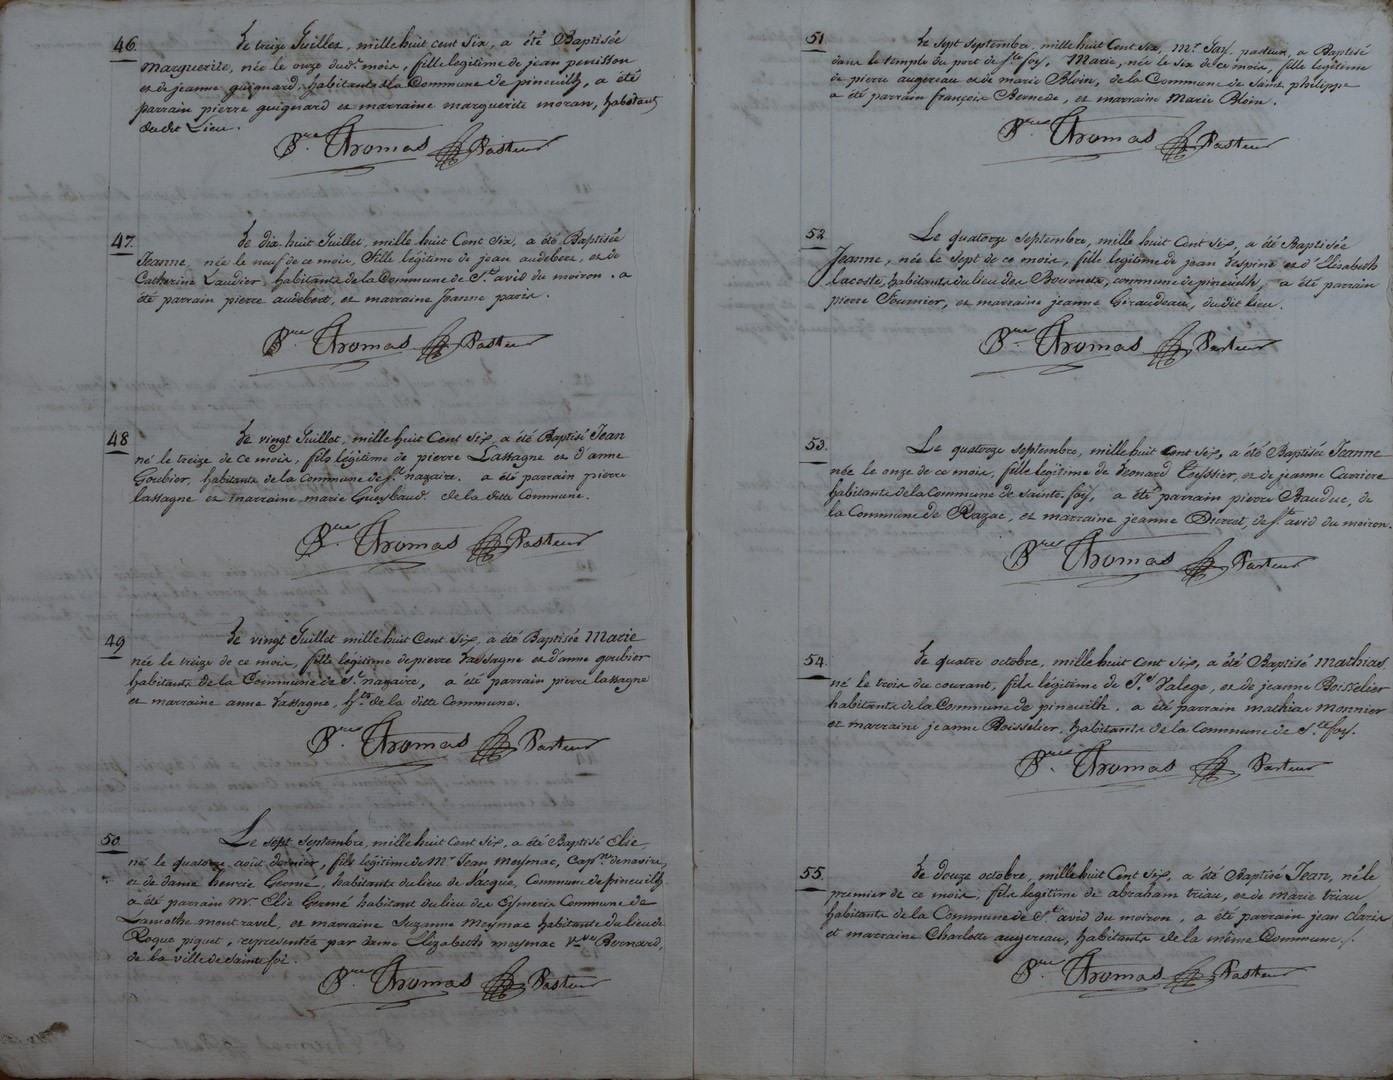 46. Le treize Juillet, mille huit cent Six, a été Baptisée
Marguerite, née le onze dudt. mois, fille legitime de jean penisson
et de jeanne guignard, habitants de la Commune de pineuilh, a été
parrain pierre guignard et marraine marguerite moran, habitants
dudit Lieu.
Prre. Thomas Pasteur
47. Le dix-huit Juillet, mille huit Cent Six, a été Baptisée
Jeanne, née le neuf de ce mois, fille légitime de jean audebert, et de
Catherine Laudier, habitants de la Commune de St. avid du moiron. a
été parrain pierre audebert, et marraine Jeanne paris.
Prre. Thomas Pasteur
48 Le vingt Juillet, mille huit Cent Six, a été Baptisé Jean
né le treize de ce mois, fils légitime de pierre Lassagne et d'anne
Goubier, habitants de la Commune de St. nazaire. a été parrain pierre
lassagne et marraine marie de la ditte Commune.
Prre. Thomas Pasteur
49 Le vingt Juillet mille huit Cent Six, a été Baptisée Marie
née le treize de ce mois, fille légitime de pierre Lassagne et d'anne goubier
habitants de la Commune de St. nazaire, a été parrain pierre lassagne
et marraine anne Lassagne, hts. de la ditte Commune.
Prre. Thomas Pasteur
50. Le sept septembre, mille huit Cent Six, a été Baptisé Elie
né le quatorze août dernier, fils légitime de Mr. Jean Meymac, Capne. de navire,
et de dame habitants du lieu de Commune de pineuilh
a été parrain Mr. Elie habitant du lieu des Commune de
Lamothe mont ravel, et marraine Suzanne Meymac habitante du lieu de
Roque piquet, représentée par dame Elizabeth meymac Vve. Bernard,
de la ville de Sainte foi.
Prre. Thomas Pasteur
51 Le sept septembre, mille huit Cent Six, Mr. Jay, pasteur, a Baptisé
dans le temple du port de Ste. foy, Marie, née le six de ce mois, fille legitime
de pierre augereau et de marie Bloin, de la Commune de Saint philippe
a été parrain françois Bernede, et marraine Marie Bloin.
Prre. Thomas Pasteur
52. Le quatorze septembre, mille huit Cent Six, a été Baptisée
Jeanne, née le sept de ce mois, fille legitime de jean despine et d'Elizabeth
lacoste, habitants du lieu des Bournets, commune de pineuilh, a été parrain
pierre Fournier, et marraine jeanne Giraudeau, dudit lieu.
Prre. Thomas Pasteur
53. Le quatorze septembre, mille huit Cent Six, a été Baptisée Jeanne
née le onze de ce mois, fille legitime de Leonard Teyssier, et de jeanne Carriere
habitants de la Commune de Sainte foy, a été parrain pierre Bauduc, de
la Commune de Razac, et marraine jeanne Durret, de St. avid du moiron.
Prre. Thomas Pasteur
54. Le quatre octobre, mille huit Cent Six, a été Baptisé Mathias
né le trois du courant, fils légitime de Valege, et de jeanne Boisselier
habitants de la Commune de pineuilh. a été parrain mathias monnier
et marraine jeanne Boisselier, habitants de la Commune de Ste. foy.
Prre. Thomas Pasteur
55. Le douze octobre, mille huit Cent Six, a été Baptisé Jean, né le
premier de ce mois, fils legitime de abraham triau, et de marie triau
habitants de la Commune de St. avid du moiron, a été parrain jean claris
et marraine Charlotte augereau, habitants de la même Commune./.
Prre. Thomas Pasteur